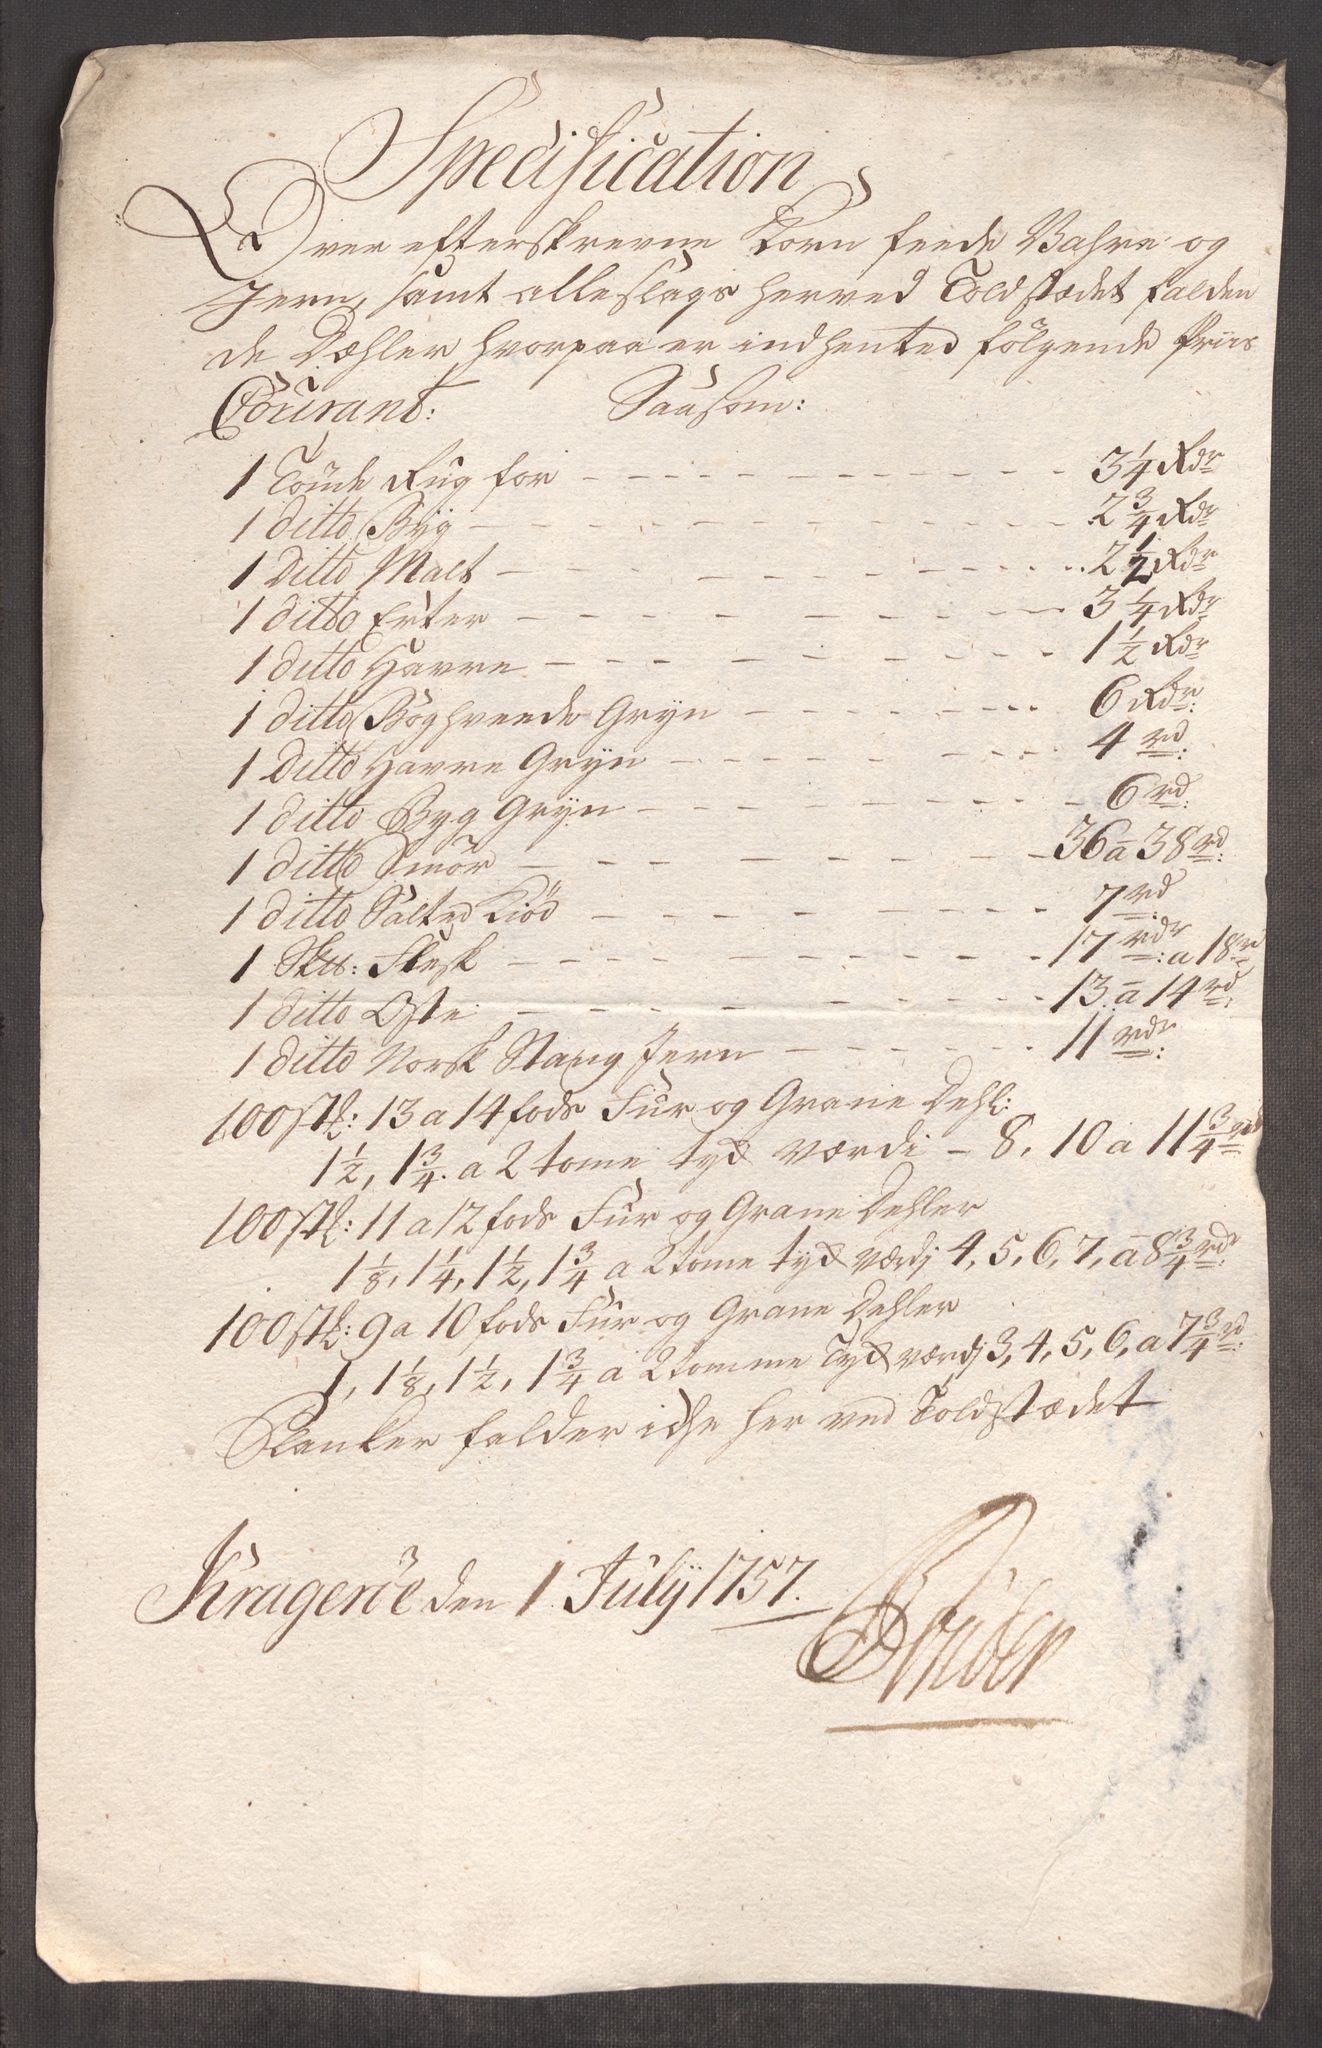 Specification
Over efterskrevne Korn feede Vahre og
Jern, samt alleslags herved Toldstædet falden
de Dæhler hvorpaa er indhented følgende Priis
Courant: Saasom:
1 Tønde Rug for - - - - - - - 3 1/4 Rdr
1 ditto Byg - - - - - - - 2 3/4 Rdr
1 Ditto Malt - - - - - - - 2 1/2 Rdr
1 ditto Erter - - - - - - - 3 1/4 Rdr
1 ditto Havre - - - - - - - 1 1/2 Rdr
1 ditto Boghveede Gryn - - - - - - - 6 Rdr:
1 Ditto Havre Gryn - - - - - - - 4 rd:
1 ditto Byg Gryn - - - - - - - 6 rd:
1 ditto Smör - - - - - - - 36 a 38 rd:
1 ditto Salted Kiöd - - - - - - - 7 rd
1 Sk℔: Flesk - - - - - - - 17 rdr: a 18 rd
1 ditto Oste - - - - - - - 13 a 14 rd:
1 ditto Norsk Stang Jern - - - - - - 11 rdr:
100 stk: 13 a 14 fods Fur og Grane Dehl:
1 1/2, 1 3/4. a 2 tome tyk værdi - 8, 10 a 11 3/4 rd
100 stk: 11 a 12 fods Fur og Grane Dehler
1 1/8, 1 1/4, 1 1/2, 1 3/4 a 2 tome tyk værdj 4, 5, 6, 7, a 8 3/4 rdr:
100 stk: 9 a 10 fods Fur og Grane Dehler
1, 1 1/8, 1 1/2, 1 3/4 a 2 tomme Tyk værdj 3, 4, 5, 6, a 7 3/4 rd:
Planker falder icke her ved Toldstædet
Krageröe den 1 July 1757.